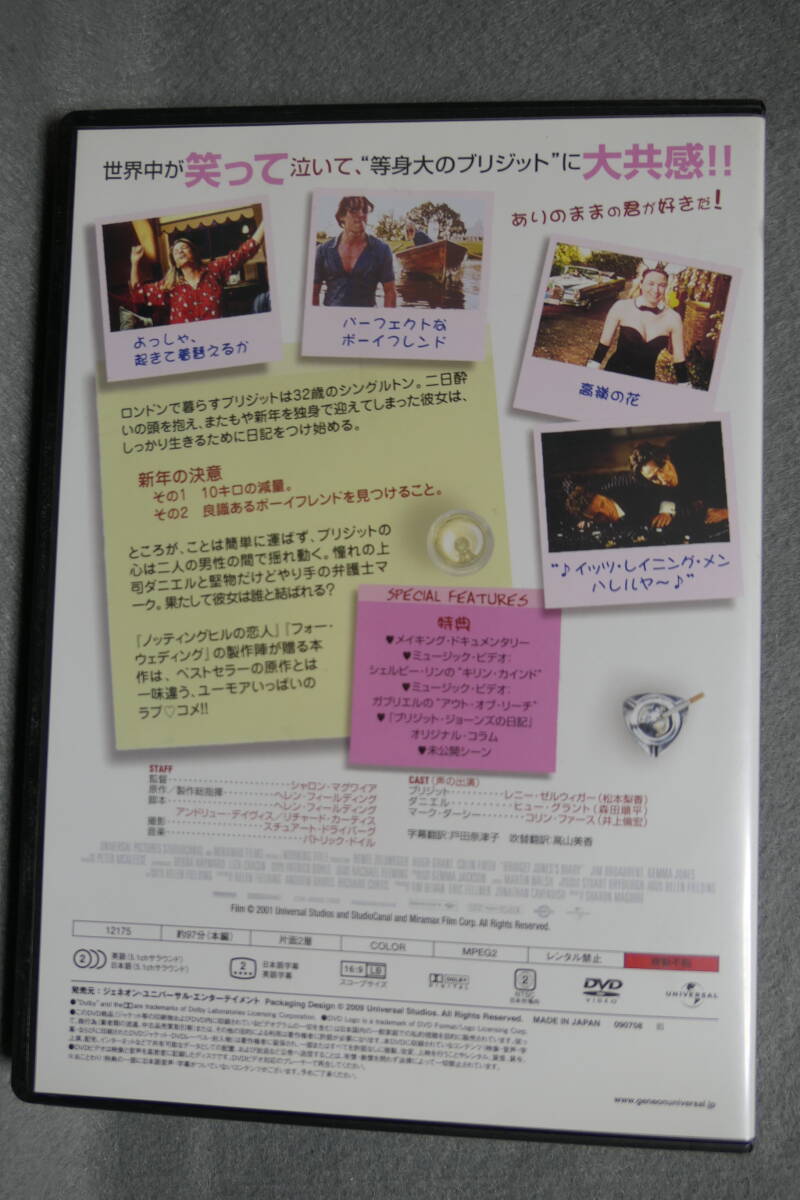 世界中が笑って泣いて、“等身大のブリジット”に大共感!!
ありのままの君が好きだ!
よっしゃ、
起きて着替えるか
パーフェクトな
ボーイフレンド
高嶺の花
“♪イッツ・レイニング・メン
ハレルヤ〜♪”
ロンドンで暮らすブリジットは32歳のシングルトン。二日酔
いの頭を抱え、またもや新年を独身で迎えてしまった彼女は、
しっかり生きるために日記をつけ始める。
新年の決意
その1 10キロの減量。
その2 良識あるボーイフレンドを見つけること。
ところが、ことは簡単に運ばず、ブリジットの
心は二人の男性の間で揺れ動く。憧れの上
司ダニエルと堅物だけどやり手の弁護士マ
ーク。果たして彼女は誰と結ばれる?
『ノッティングヒルの恋人』『フォー・
ウェディング』の製作陣が贈る本
作は、ベストセラーの原作とは
一味違う、ユーモアいっぱいの
ラブ♡コメ!!
SPECIAL FEATURES
特典
♥メイキング・ドキュメンタリー
♥ミュージック・ビデオ:
シェルビー・リンの“キリン・カインド”
♥ミュージック・ビデオ:
ガブリエルの“アウト・オブ・リーチ”
♥『ブリジット・ジョーンズの日記』
オリジナル・コラム
♥未公開シーン
STAFF
監督 シャロン・マグワイア
原作/製作総指揮 ヘレン・フィールディング
脚本 ヘレン・フィールディング
アンドリュー・デイヴィス/リチャード・カーティス
撮影 スチュアート・ドライバーグ
音楽 パトリック・ドイル
CAST(声の出演)
ブリジット レニー・ゼルウィガー(松本梨香)
ダニエル ヒュー・グラント(森田順平)
マーク・ダーシー コリン・ファース(井上倫宏)
字幕翻訳:戸田奈津子 吹替翻訳:高山美香
Film © 2001 Universal Studios and StudioCanal and Miramax Film Corp. All Rights Reserved.
12175 約97分(本編) 片面2層 COLOR MPEG2 レンタル禁止
2 英語(5.1chサラウンド)
日本語(5.1chサラウンド)
2 日本語字幕
英語字幕
16:9 LB
スコープサイズ
DOLBY
DIGITAL
2
NTSC
日本市場向
DVD
VIDEO
UNIVERSAL
発売元:ジェネオン・ユニバーサル・エンターテイメント Packaging Design © 2009 Universal Studios. All Rights Reserved. MADE IN JAPAN 090708
www.geneonuniversal.jp